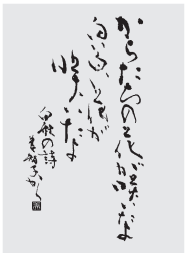 からたちの花が咲いたよ
白い白い花が
咲いたよ
白秋の詩